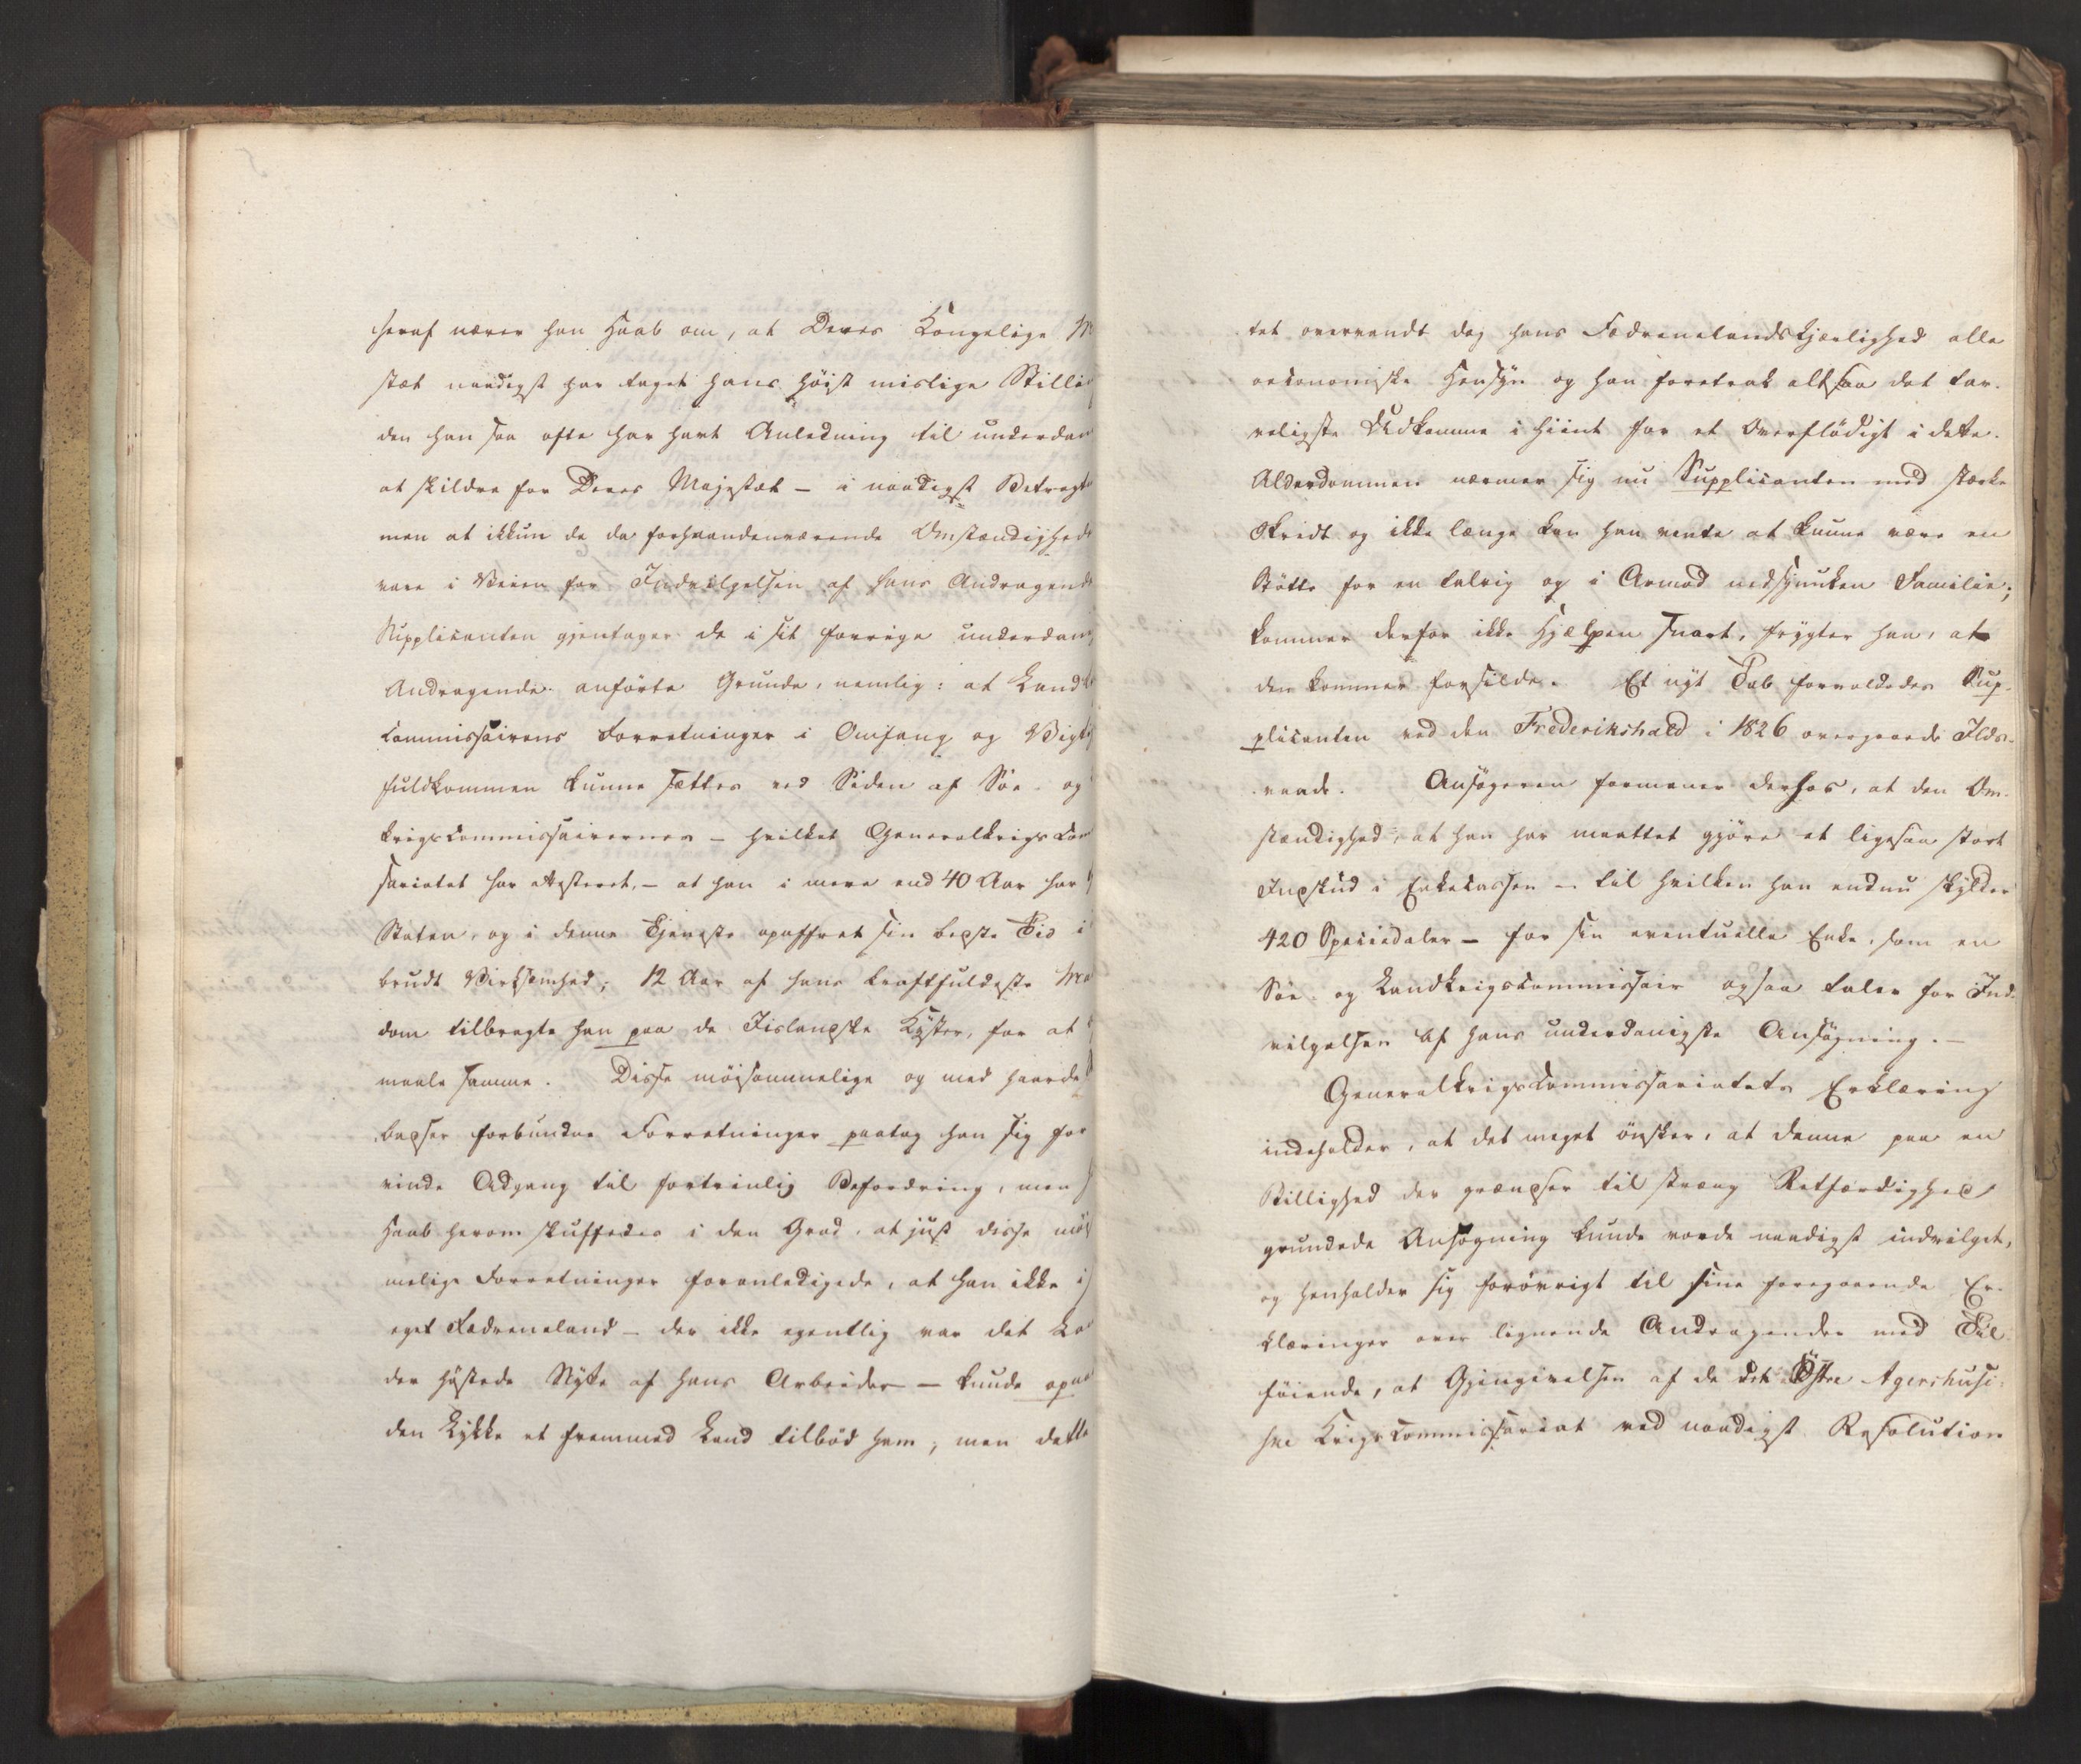 heraf nærer han Haab om, at Deres Kongelige M
stæt naadigst har taget hans høist mislige Stilli
den han saa ofte har havt Anledning til underdan
at skildre for Deres Majestæt – i naadigst Betragt
men at ikkun de da forhaandenværende Omstændighed
vare i Veien for Indvilgelsen af hans Andragende
Supplicanten gjentager de i sit forrige underdan
Andragende anførte Grunde, nemlig: at Land
commissairens Forretninger i Omfang og Vigti
fuldkommen kunne sættes ved Siden af Søe- og
krigscommissairernes – hvilket Generalkrigscom
sariatet har attesteret, – at han i mere end 40 Aar har
Staten, og i denne Tjeneste opoffret sin bedste Tid i
brudt Virksomhed; 12 Aar af hans kraftfuldeste Ma
dom tilbragte han paa de Islandske Kyster, for at
maale samme. Disse møisommelige og med haarde
belser forbundne Forretninger paatog han sig for
vinde Adgang til fortrinlig Befordring, men
Haab herom skuffedes i den Grad, at just disse møi
melige Forretninger foranledigede, at han ikke i
eget Fædreneland – der ikke egentlig var det La
der høstede Nytte af hans Arbeider – kunde opna
den Lykke et fremmed Land tilbød ham; men dette
tet overvandt dog hans Fædrenelandskjærlighed alle
oeconomiske Hensyn og han foretrak altsaa det tar-
veligste Udkomme i hiint for et Overflødigt i dette.
Alderdommen nærmer sig nu Supplicanten med stærke
Skridt og ikke længe kan han vente at kunne være en
Støtte for en talrig og i Armod nedsjunken Familie;
kommer derfor ikke Hjælpen snart, frygter han, at
den kommer forsilde. Et nyt Tab forvoldedes Sup-
plicanten ved den Frederikshald i 1826 overgaaede Ilds-
vaade. Ansøgeren formener derhos, at den Om-
stændighed, at han har maattet gjøre et ligesaa stort
Indskud i Enkecassen – til hvilken han endnu skylder
420 Speciedaler – for sin eventuelle Enke, som en
Søe- og Landkrigscommissair ogsaa taler for Ind-
vilgelsen af hans underdanigste Ansøgning. –
Generalkrigscommissariatets Erklæring
indeholder, at det meget ønsker, at denne paa en
Billighed der grændser til stræng Retfærdighed
grundede Ansøgning kunde vorde naadigst indvilget,
og henholder sig forøvrigt til sine foregaaende Er-
klæringer over lignende Andragender med Til-
føiende, at Gjengivelsen af de det Østre Agershusi-
ske Krigscommissariat ved naadigst Resolution